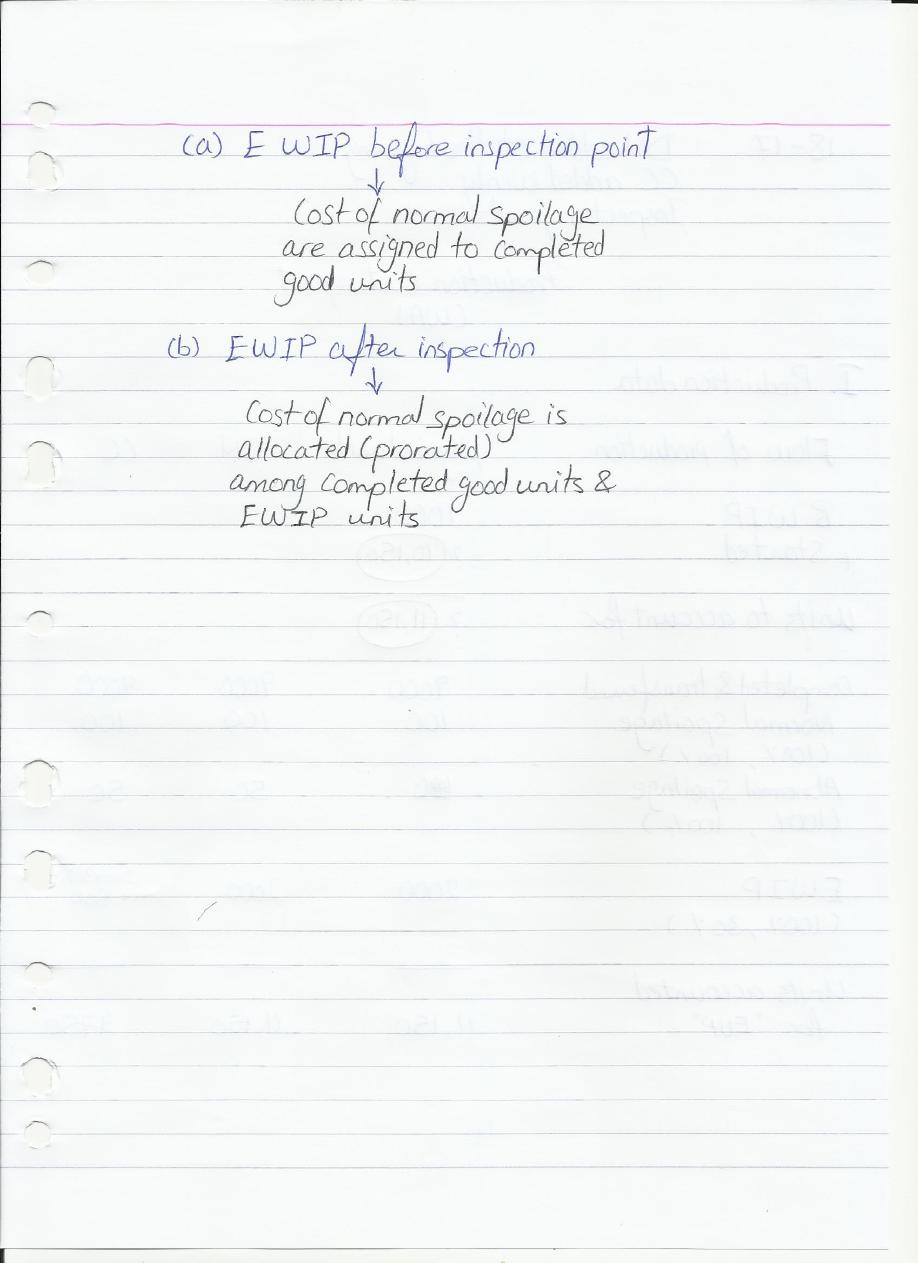 (a) E WIP before inspection point
↓
Cost of normal spoilage
are assigned to completed
good units
(b) EWIP after inspection
↓
Cost of normal spoilage is
allocated (prorated)
among completed good units &
EWIP units